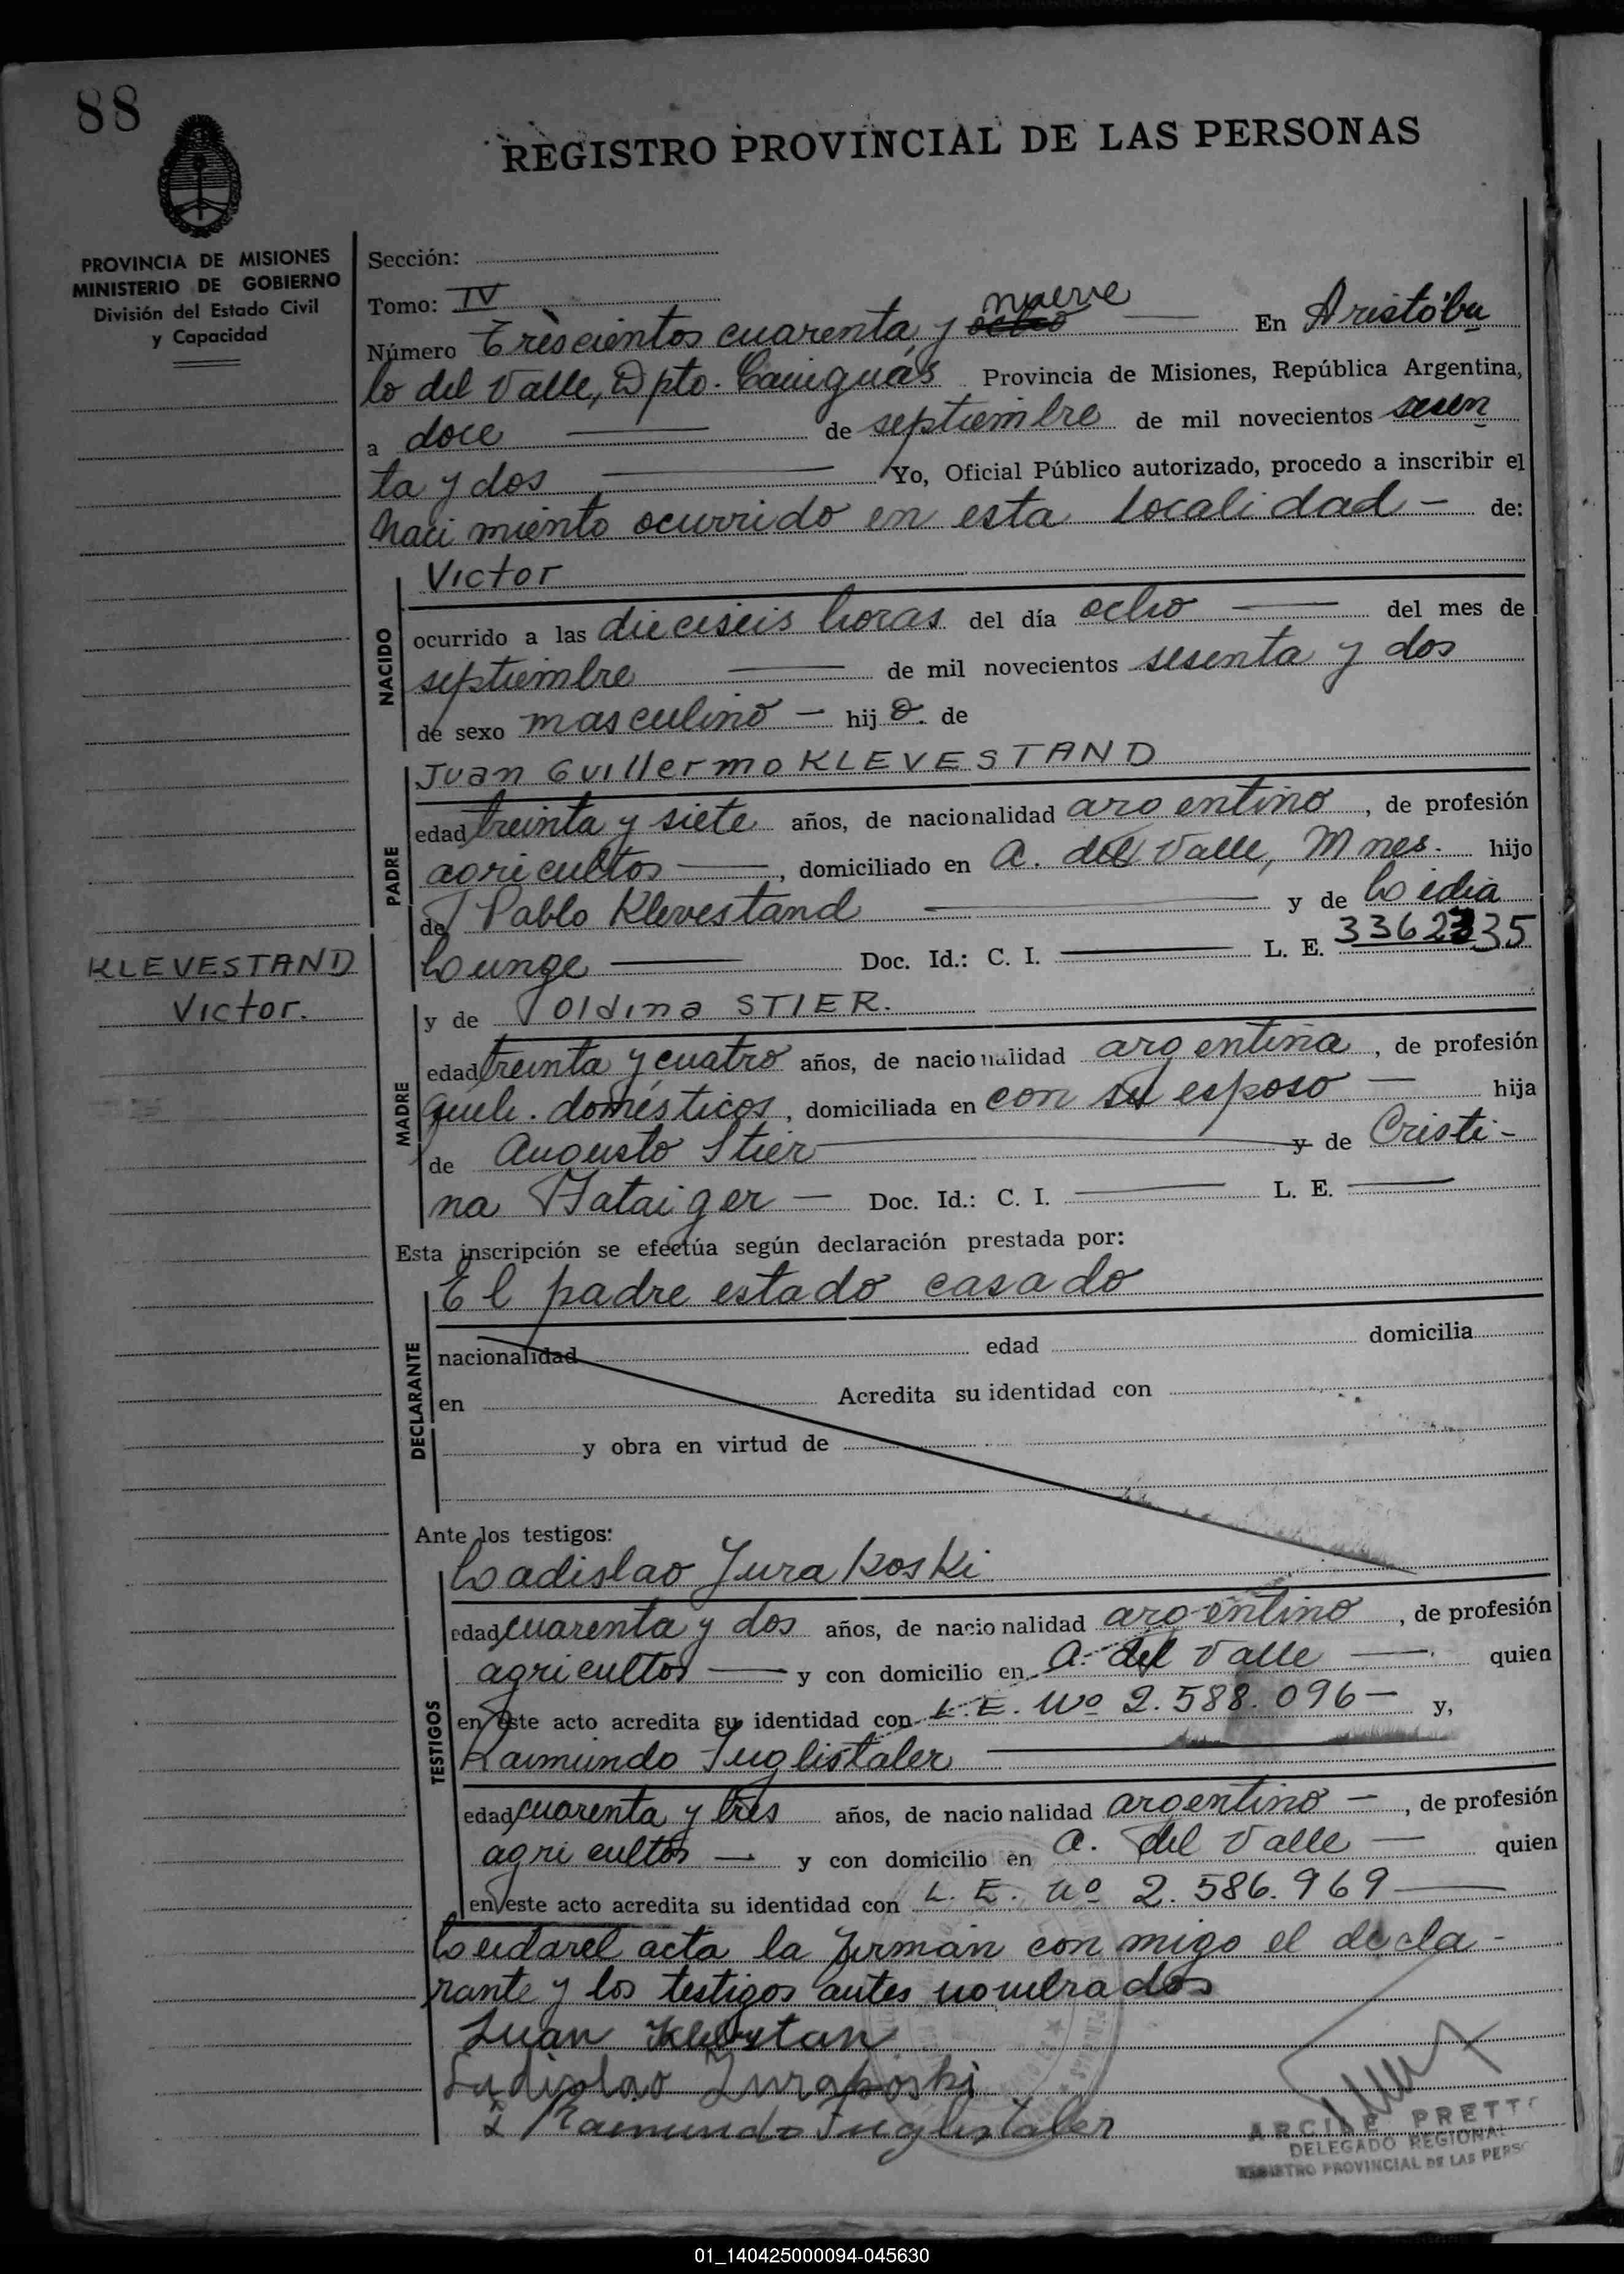 88
REGISTRO PROVINCIAL DE LAS PERSONAS
PROVINCIA DE MISIONES
MINISTERIO DE GOBIERNO
División del Estado Civil
y Capacidad
Sección:
Tomo: IV
nueve
Número Trescientos cuarenta y ocho En Aristóbu
lo del Valle, Dpto. Cainguás Provincia de Misiones, República Argentina,
a doce de septiembre de mil novecientos sesen
ta y dos Yo, Oficial Público autorizado, procedo a inscribir el
naci miento ocurrido en esta localidad - de:
Victor
NACIDO
ocurrido a las dieciseis horas del día ocho del mes de
septiembre de mil novecientos sesenta y dos
de sexo masculino - hij o. de
Juan Guillermo KLEVESTAND
PADRE
edad treinta y siete años, de nacionalidad argentino, de profesión
agricultor, domiciliado en A. del Valle, Mnes. hijo
de Pablo Klevestand y de Loidia
Lounge Doc. Id.: C. I. L. E. 3362335
KLEVESTAND
Victor.
y de Toldina STIER.
MADRE
edad treinta y cuatro años, de nacionalidad argentina, de profesión
queh. domésticos, domiciliada en con su esposo - hija
de Augusto Stier y de Cristi-
na Hataiger - Doc. Id.: C. I. L. E.
Esta inscripción se efectúa según declaración prestada por:
El padre estado casado
DECLARANTE
nacionalidad edad domicilia
en Acredita su identidad con
y obra en virtud de
Ante los testigos:
Ladislao Jurakoski
TESTIGOS
edad cuarenta y dos años, de nacionalidad argentino, de profesión
agricultor y con domicilio en A. del Valle quien
en este acto acredita su identidad con L. E. Nº 2.588.096 - y,
Raimundo Inglistaler
edad cuarenta y tres años, de nacionalidad argentino -, de profesión
agricultor - y con domicilio en A. del Valle - quien
en este acto acredita su identidad con L. E. Nº 2.586.969
Leida el acta la firman con migo el decla-
rante y los testigos antes nombrados
Juan
Ladislao Jurakoski
Raimundo Inglistaler
PRETTO
DELEGADO REGIONAL
REGISTRO PROVINCIAL DE LAS PERSO
01_140425000094-045630